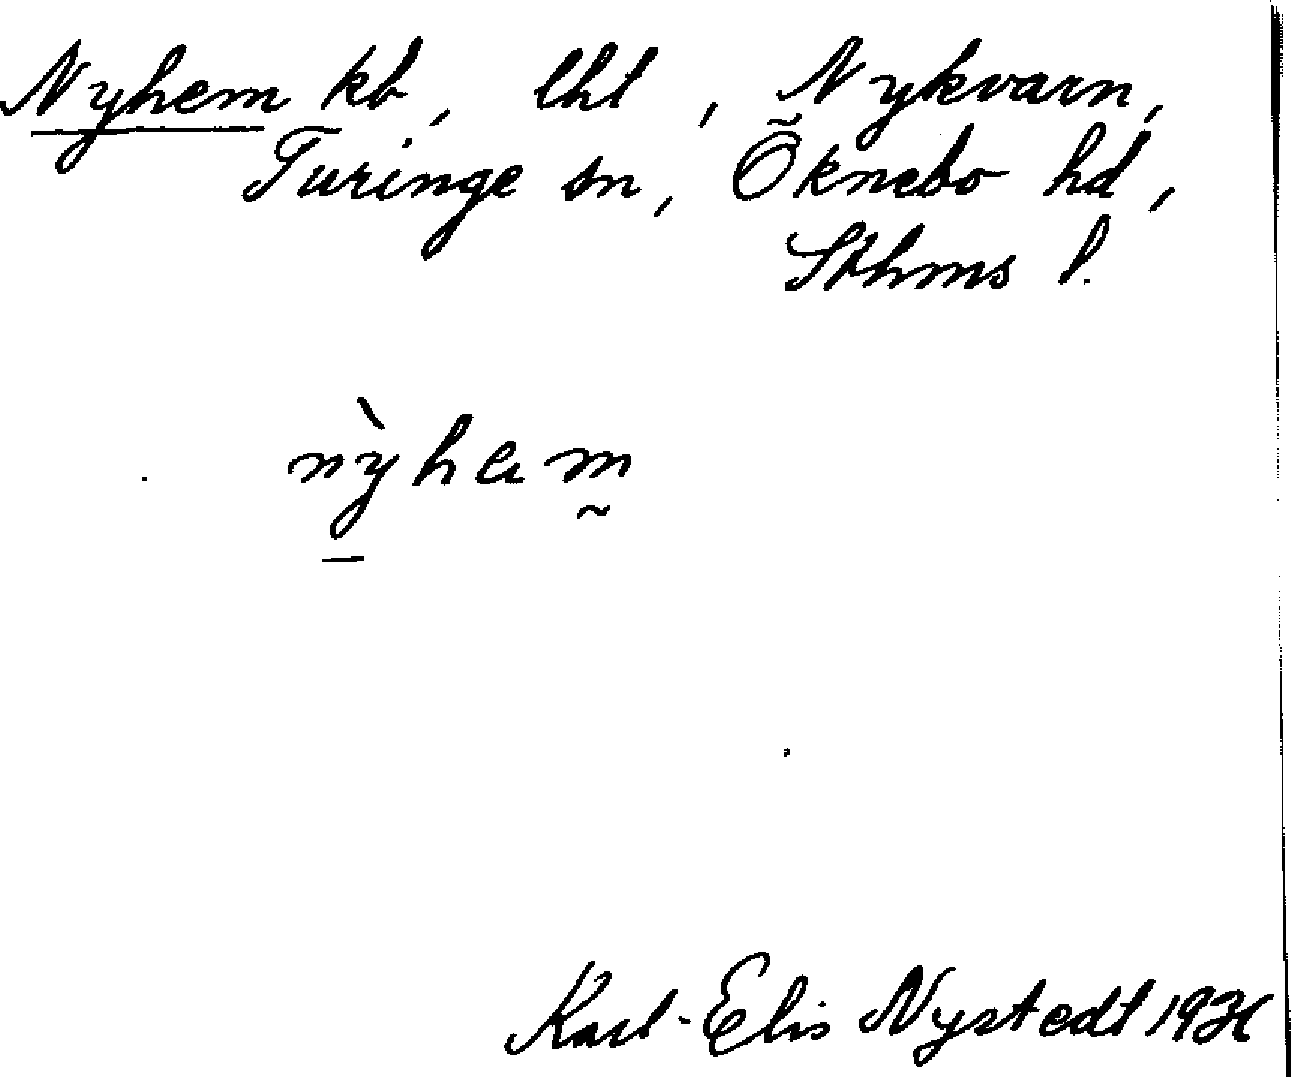 Nyhem kb, lht, Nykvarn,
Turinge sn, Öknebo hd,
Sthms l.
nỳhem
Karl-Elis Nystedt 1931